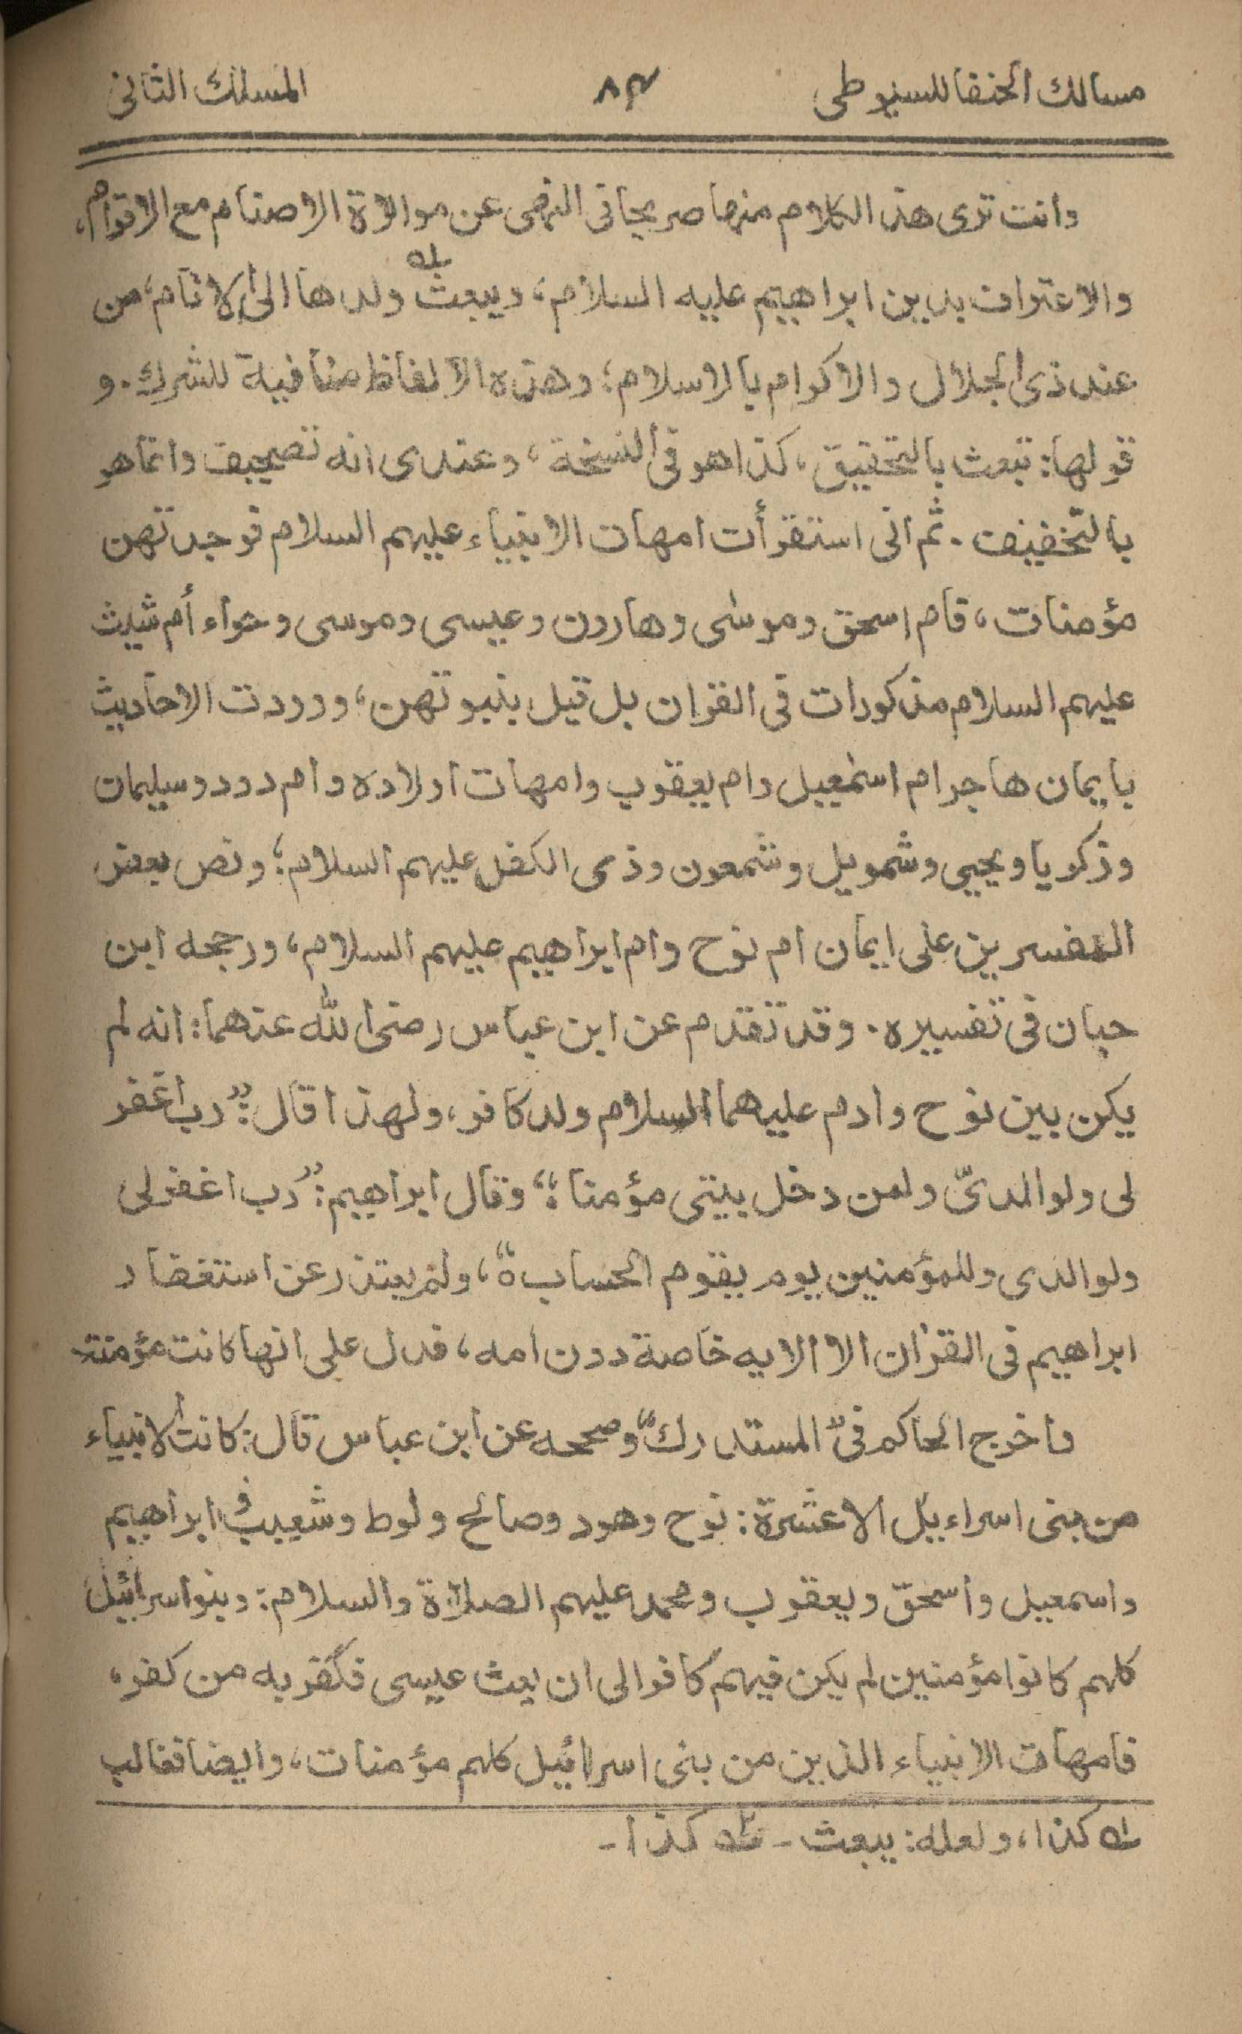 مسالك الحنفا للسيوطى ٨٣ المسلك الثانى
وانت ترى هذا الكلام منها صريحا فى النهى عن موالاة الاصنام مع الاقوام،
والاعتراف بدين ابراهيم عليه السلام، ويبعث ولدها الى الانام، من
عند ذى الجلال والاكرام بالاسلام؛ وهذه الالفاظ منافية للشرك. و
قولها: تبعث بالتحقيق، كذا هو فى النسخة، وعندى انه تصحيف وانما هو
بالتخفيف. ثم انى استقرأت امهات الانبياء عليهم السلام فوجدتهن
مؤمنات، فام اسحق وموسى وهارون وعيسى وموسى وحواء أم شيث
عليهم السلام مذكورات فى القران بل قيل بنبوتهن، ووردت الاحاديث
بايمان هاجر ام اسمعيل وام يعقوب وامهات اولاده وام دود وسليمان
وزكريا ويحيى وشمويل وشمعون وذى الكفل عليهم السلام؛ ونص بعض
المفسرين على ايمان ام نوح وام ابراهيم عليهم السلام، ورجحه ابن
حبان فى تفسيره. وقد تقدم عن ابن عباس رضى الله عنهما: انه لم
يكن بين نوح وادم عليهما السلام ولد كافر، ولهذا قال: ”رب اغفر
لى ولوالدىّ ولمن دخل بيتى مؤمنا؛“ وقال ابراهيم: ”رب اغفرلى
ولوالدى وللمؤمنين يوم يقوم الحساب ٥“، ولم يعتذر عن استغفار
ابراهيم فى القران الا الابيه خاصة دون امه، فدل على انها كانت مؤمنة
واخرج الحاكم فى ”المستدرك“ وصححه عن ابن عباس قال: كانت الانبياء
من بنى اسراءيل الا عشرة: نوح وهود وصالح ولوط وشعيب و ابراهيم
واسمعيل واسحق ويعقوب ومحمد عليهم الصلاة والسلام: وبنو اسرائيل
كلهم كانوا مؤمنين لم يكن فيهم كافر الى ان بعث عيسى فكفر به من كفر،
فامهات الانبياء الذين من بنى اسرائيل كلهم مؤمنات، وايضا فغالب
له كذا، ولعله: يبعث - كذا -